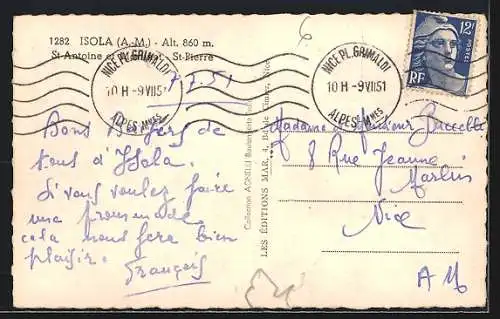 1282 ISOLA (A.-M.) - Alt. 860 m.
St-Antoine et St-Pierre
7.7.51
NICE PL. GRIMALDI
10 H - 9 VII 51
ALPES MMES
NICE PL. GRIMALDI
10 H - 9 VII 51
ALPES MMES
12F
RF
Bons Baisers de
tous d'Isola.
Si vous voulez faire
une promenade
cela nous fera bien
plaisir.
François
Collection AGNELLI
LES ÉDITIONS MAR, 4, Nice
Madame et Monsieur
8 Rue Jeanne
Nice
A M